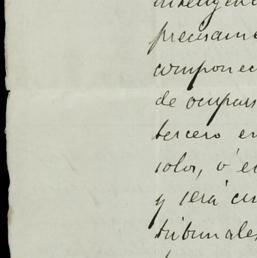 inteligen
precisame
componec
de ocupars
tercero en
solo, ó e
y será cu
tribunales